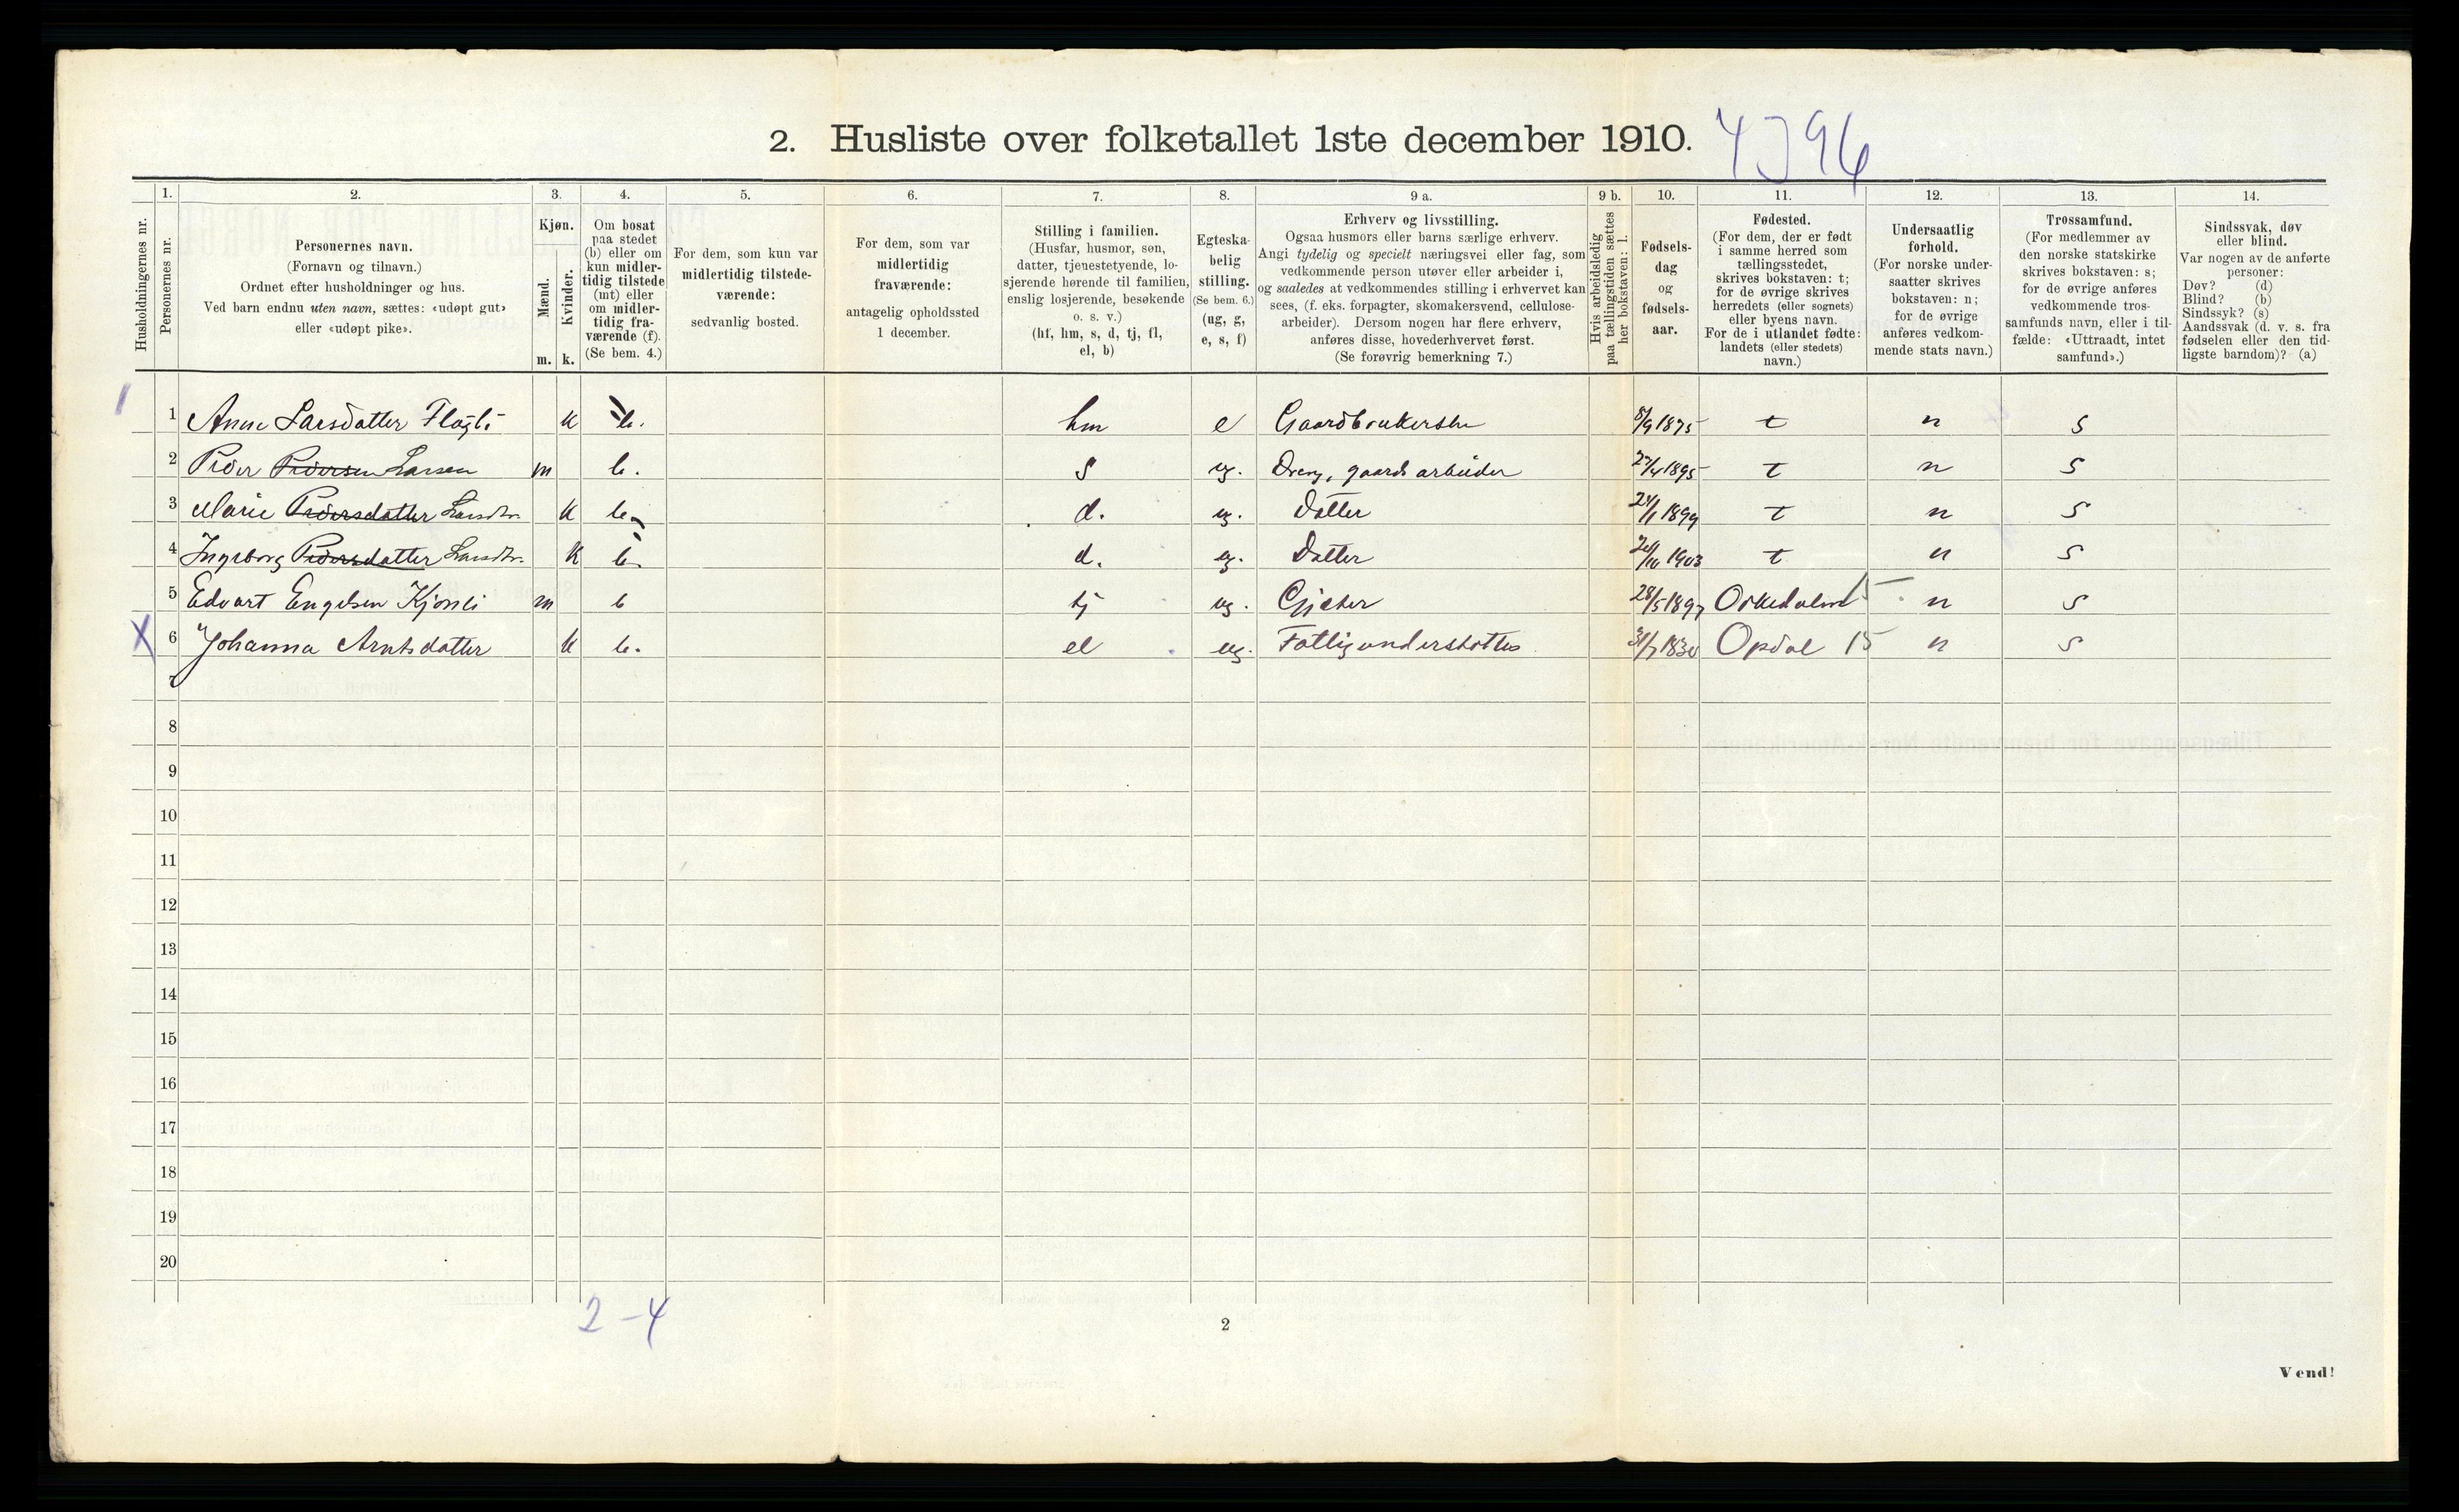 2. Husliste over folketallet 1ste december 1910.
4396
Husholdningernes nr.
1.
Personernes nr.
2.
Personernes navn.
(Fornavn og tilnavn.)
Ordnet efter husholdninger og hus.
Ved barn endnu uten navn, sættes: «udøpt gut»
eller «udøpt pike».
3.
Kjøn.
Mænd.
Kvinder.
m. k.
4.
Om bosat
paa stedet
(b) eller om
kun midler-
tidig tilstede
(mt) eller
om midler-
tidig fra-
værende (f).
(Se bem. 4.)
5.
For dem, som kun var
midlertidig tilstede-
værende:
sedvanlig bosted.
6.
For dem, som var
midlertidig
fraværende:
antagelig opholdssted
1 december.
7.
Stilling i familien.
(Husfar, husmor, søn,
datter, tjenestetyende, lo-
sjerende hørende til familien,
enslig losjerende, besøkende
o. s. v.)
(hf, hm, s, d, tj, fl,
el, b)
8.
Egteska-
belig
stilling.
(Se bem. 6.)
(ug, g,
e, s, f)
9 a.
Erhverv og livsstilling.
Ogsaa husmors eller barns særlige erhverv.
Angi tydelig og specielt næringsvei eller fag, som
vedkommende person utøver eller arbeider i,
og saaledes at vedkommendes stilling i erhvervet kan
sees, (f. eks. forpagter, skomakersvend, cellulose-
arbeider). Dersom nogen har flere erhverv,
anføres disse, hovederhvervet først.
(Se forøvrig bemerkning 7.)
9 b.
Hvis arbeidsledig
paa tællingstiden sættes
her bokstaven: l.
10.
Fødsels-
dag
og
fødsels-
aar.
11.
Fødested.
(For dem, der er født
i samme herred som
tællingsstedet,
skrives bokstaven: t;
for de øvrige skrives
herredets (eller sognets)
eller byens navn.
For de i utlandet fødte:
landets (eller stedets)
navn.)
12.
Undersaatlig
forhold.
(For norske under-
saatter skrives
bokstaven: n;
for de øvrige
anføres vedkom-
mende stats navn.)
13.
Trossamfund.
(For medlemmer av
den norske statskirke
skrives bokstaven: s;
for de øvrige anføres
vedkommende tros-
samfunds navn, eller i til-
fælde: «Uttraadt, intet
samfund».)
14.
Sindssvak, døv
eller blind.
Var nogen av de anførte
personer:
Døv? (d)
Blind? (b)
Sindssyk? (s)
Aandssvak (d. v. s. fra
fødselen eller den tid-
ligste barndom)? (a)
1 1 Anne Larsdatter Flagli k b. hm e Gaardbrukerske 8/9 1875 t n s
2 Peder Pedersen Larsen m b. s ug. Dreng, gaardsarbeider 27/4 1895 t n s
3 Marie Pedersdatter Larsdtr. k b. d. ug. Datter 24/1 1899 t n s
4 Ingeborg Pedersdatter Larsdtr. k b. d. ug. Datter 1903 t n s
5 Edvart Engelsen Kjønli m b tj ug. Gjeter 28/5 1897 Orkedalen 15 n s
X 6 Johanna Arntsdatter k b. el ug. Fattigunderstøttes 31/7 1830 Opdal 15 n s
7
8
9
10
11
12
13
14
15
16
17
18
19
20
2-4
2
Vend!